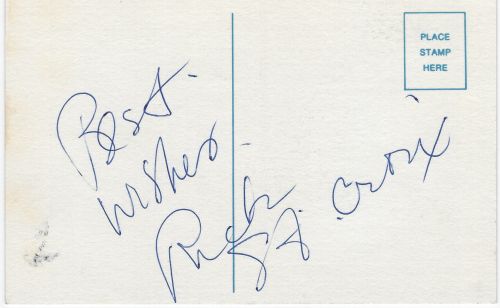 PLACE
STAMP
HERE
Best
wishes
Rick
St. Croix